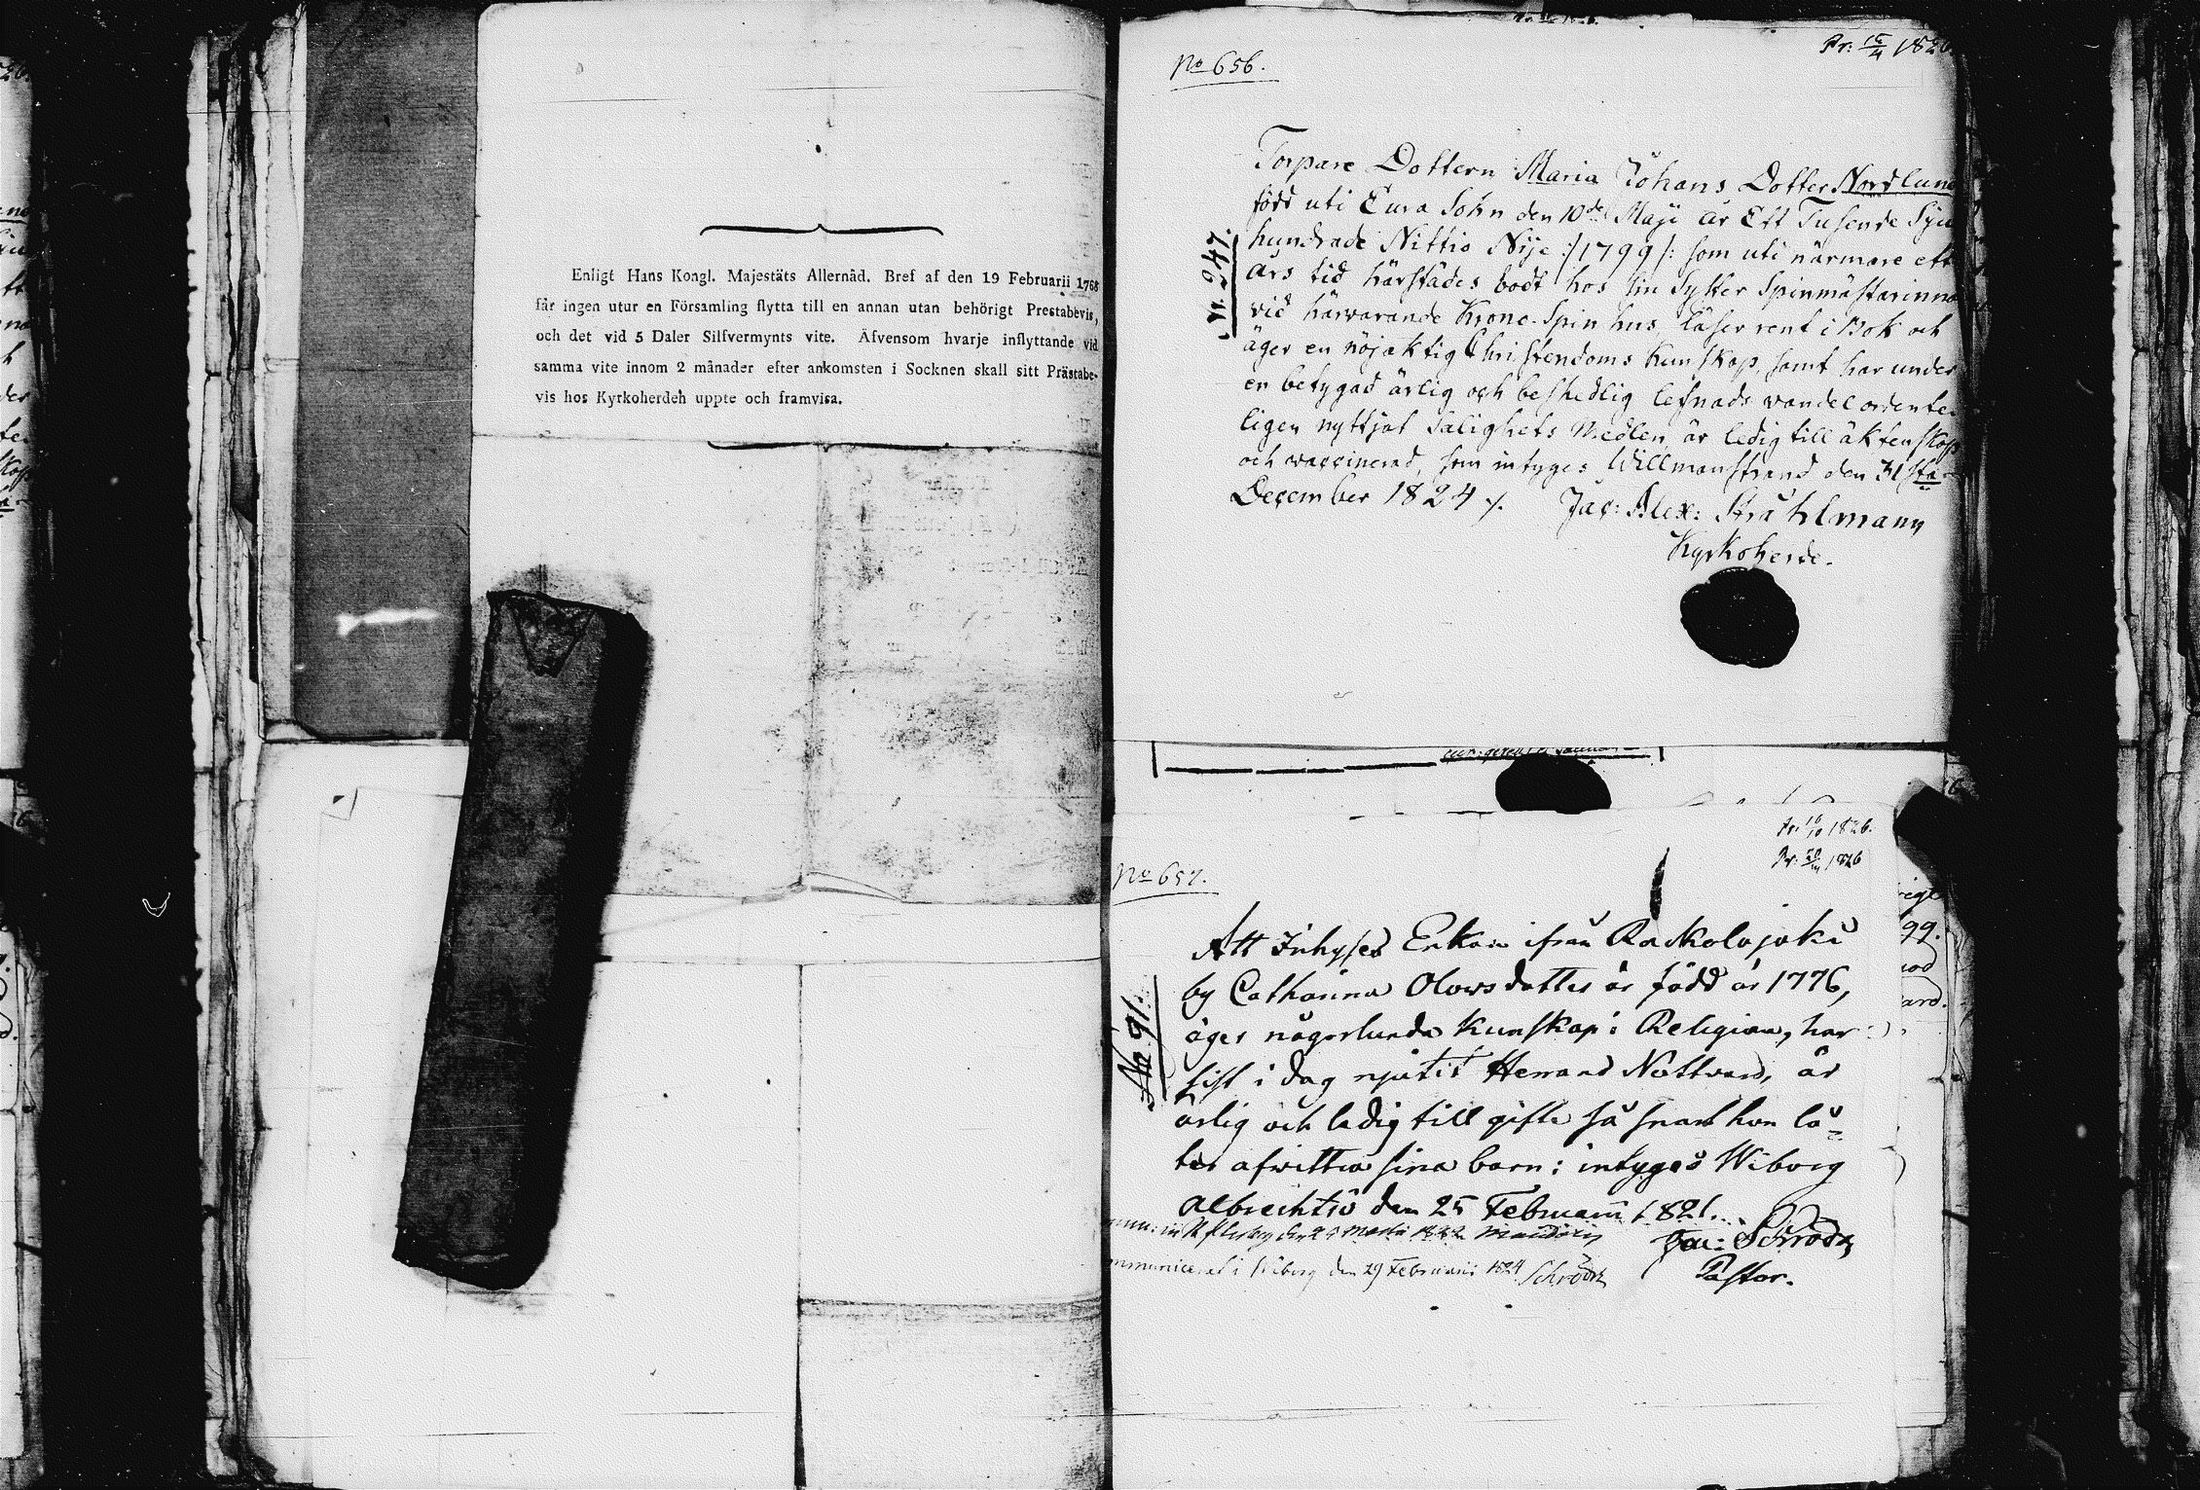 Enligt Hans Kongl. Majestäts Allernåd. Bref af den 19 Februarii 1768
får ingen utur en Församling flytta till en annan utan behörigt Prestabevis,
och det vid 5 Daler Silfvermynts vite. Äfvensom hvarje inflyttande vid
samma vite innom 2 månader efter ankomsten i Socknen skall sitt Prästabe-
vis hos Kyrkoherden uppte och framvisa.
No 656.
Pr: 1826
Torpare Dottern Maria Johans Dotter Nordlund
född uti Eura Sokn den 10de Maji år Ett Tusende Sju
hundrade Nittio Nije :/1799/: som uti närmare ett
års tid härstädes bodt hos sin Syster Spinmästarinna
vid härvarande Krono-Spinhus, läser rent i Bok och
äger en nöjaktig Christendoms Kunskap, samt har under
en betygad ärlig och beskedlig lefnads vandel ordente-
ligen nyttjat Salighets Medlen, är ledig till äktenskap
och vaccinerad, som intygas Willmanstrand den 31sta
December 1824
Jac: Alex: Stråhlmann
Kyrkoherde.
N. 247.
1826.
Pr: 1826
No 657.
Att Inhyses Enkan ifrån Raskolajoki
by Catharina Olowsdotter är född år 1776,
äger någorlunda Kunskap i Religion, har
sist i dag njutit Herrans Nattvard, är
ärlig och ledig till gifte så snart hon lå-
ter afvittra sina barn; intygas Wiborg
Albrechtis den 25 Februarii 1821.
Schröder
Pastor.
No 91.
den 29 Februarii 1824 Schröder